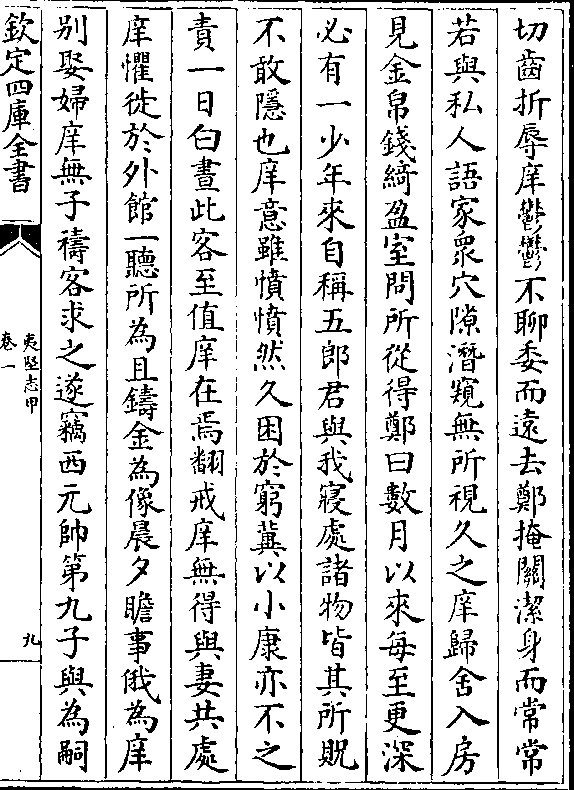 切齒折辱庠鬱鬱不聊委而遠去鄭掩關潔身而常常
若與私人語家衆穴隙潛窺無所視久之庠歸舍入房
見金帛錢綺盈室問所從得鄭曰數月以來每至更深
必有一少年來自稱五郎君與我寢處諸物皆其所貺
不敢隱也庠意雖憤憤然久困於窮冀以小康亦不之
責一日白晝此客至值庠在焉翻戒庠無得與妻共處
庠懼徙於外館一聽所為且鑄金為像晨夕瞻事俄為庠
别娶婦庠無子禱客求之遂竊西元帥第九子與為嗣
欽定四庫全書
夷堅志甲
卷一
九